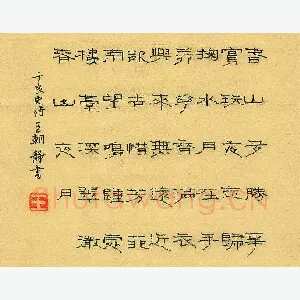 春山多勝事
賞玩夜忘歸
掬水月在手
弄花香滿衣
興來無遠近
欲去惜芳菲
南望鳴鐘處
樓臺深翠微
春山夜月
于良史詩 王朝 書